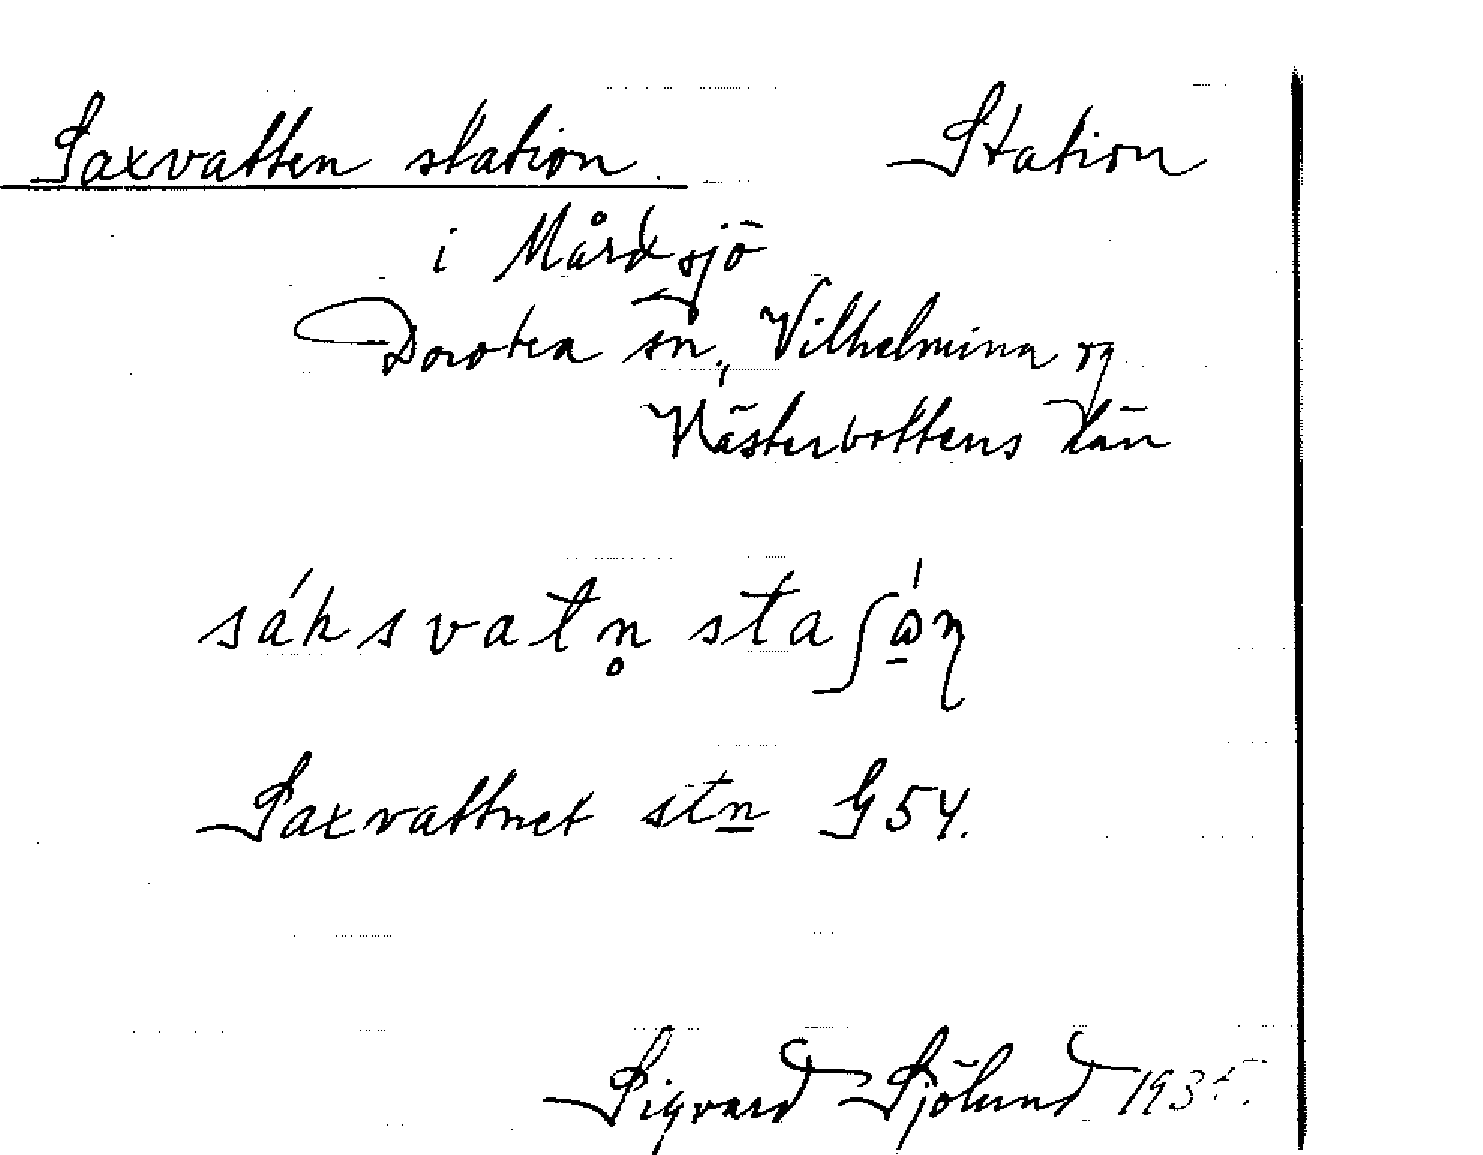 Saxvatten station. Station
i Mårdsjö
Dorotea sn., Vilhelmina
Västerbottens län
sáksvatn̥ sta∫ώ̱n
Saxvattnet stn G54.
Sigvard Sjölund 1935.